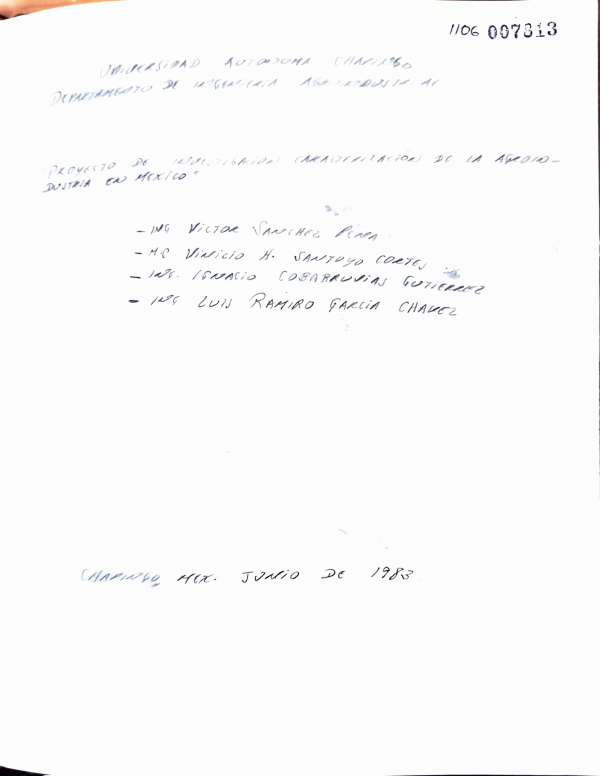 1106 007313
UNIVERSIDAD AUTONOMA CHAPINGO
DEPARTAMENTO DE INGENIERIA AGROINDUSTRIAL
PROYECTO DE INVESTIGACION CARACTERIZACIÓN DE LA AGROIN-
DUSTRIA EN MEXICO"
- ING VICTOR SANCHEZ PEÑA
- MC VINICIO H. SANTOYO CORTES
- ING. IGNACIO COBARRUVIAS GUTIERREZ
- ING LUIS RAMIRO GARCIA CHAVEZ
CHAPINGO, MEX. JUNIO DE 1983